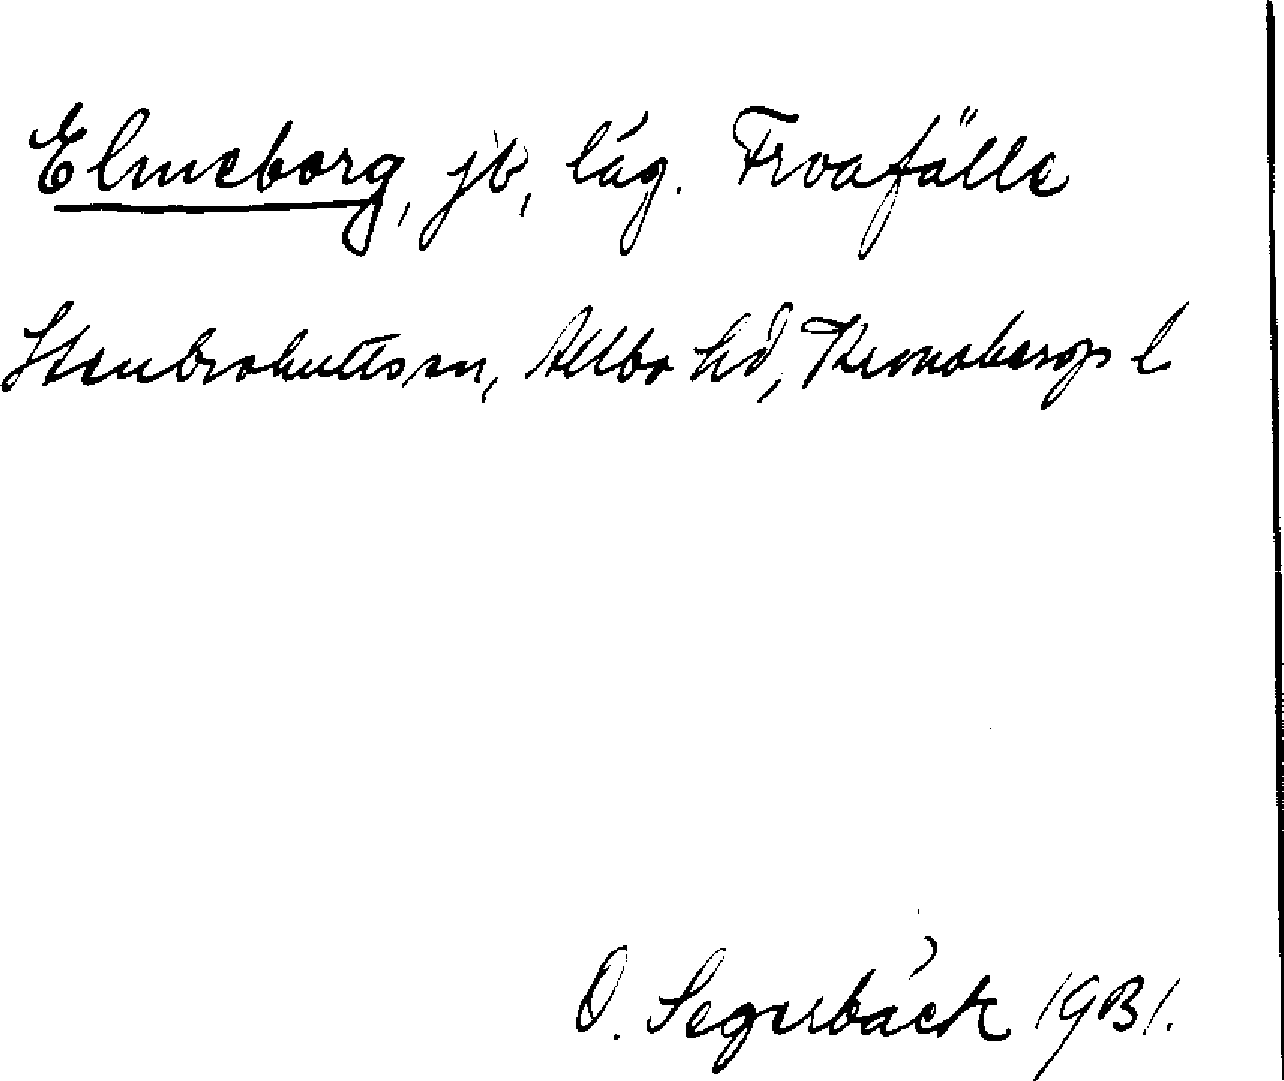 Elmeborg, jb, läg. Froafälle
Stenbrohults sn, Allbo hd, Kronobergs l
O. Segerbäck 1931.